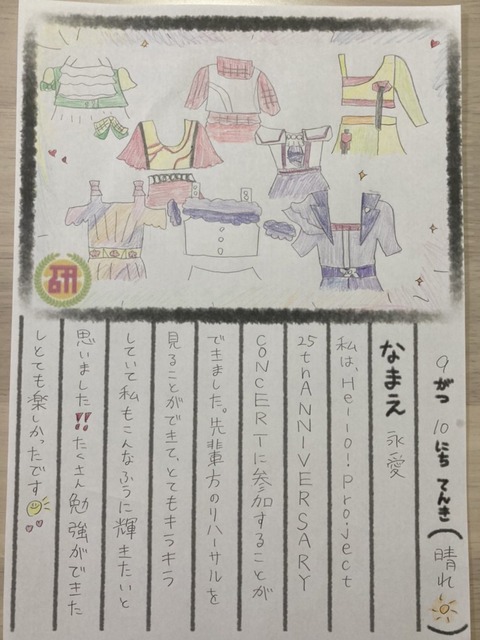 研
9がつ10にちてんき(晴れ)
なまえ 永愛
私は、Hello!Project
25thANNIVERSARY
CONCERTに参加することが
できました。先輩方のリハーサルを
見ることができて、とてもキラキラ
していて私もこんなふうに輝きたいと
思いました!!たくさん勉強ができた
しとても楽しかったです